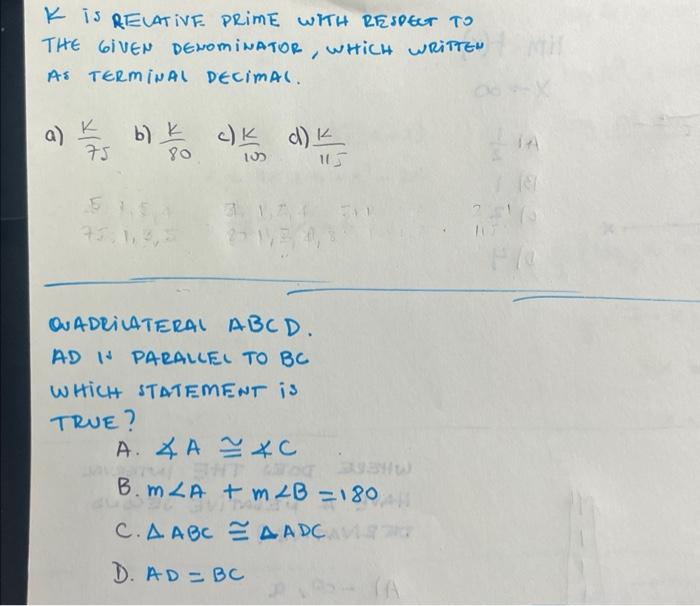 K IS RELATIVE PRIME WITH RESPECT TO
THE GIVEN DENOMINATOR, WHICH WRITTEN
AS TERMINAL DECIMAL.
a) K/75 b) K/80 c) K/100 d) K/115
QUADRILATERAL ABCD.
AD IS PARALLEL TO BC
WHICH STATEMENT IS
TRUE?
A. ∡A ≅ ∡C
B. m∠A + m∠B = 180
C. △ABC ≅ △ADC
D. AD = BC